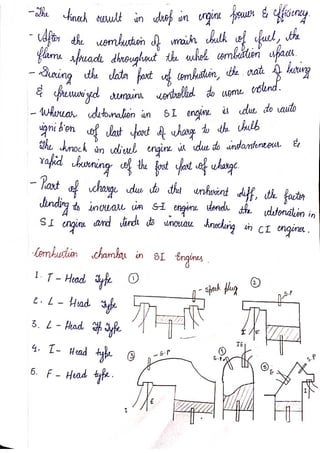 - The knock result in drop in engine power & efficiency.
- After the combustion of main bulk of fuel, the
flame spreads throughout the whole combustion space.
- During the late part of combustion, the rate of burning
& pressurized remains controlled to some extend.
- Whereas detonation in SI engine is due to auto
ignition of last part of charge to the bulb
The knock in diesel engine is due to instantaneous &
rapid burning of the first part of charge.
- Part of charge due to this inherient diff, the factor
tending to increase in S-I engine tends the detonation in
S I engine and tends to increase knocking in C I engine.
Combustion chamber in SI Engines.
1. T - Head Type
2. L - Head Type
3. L - Head Type
4. I - Head type
5. F - Head type.
①
- Spark plug
②
S.P
I
E
③
S.P
I
E
④
S.P
⑤
S.P
I